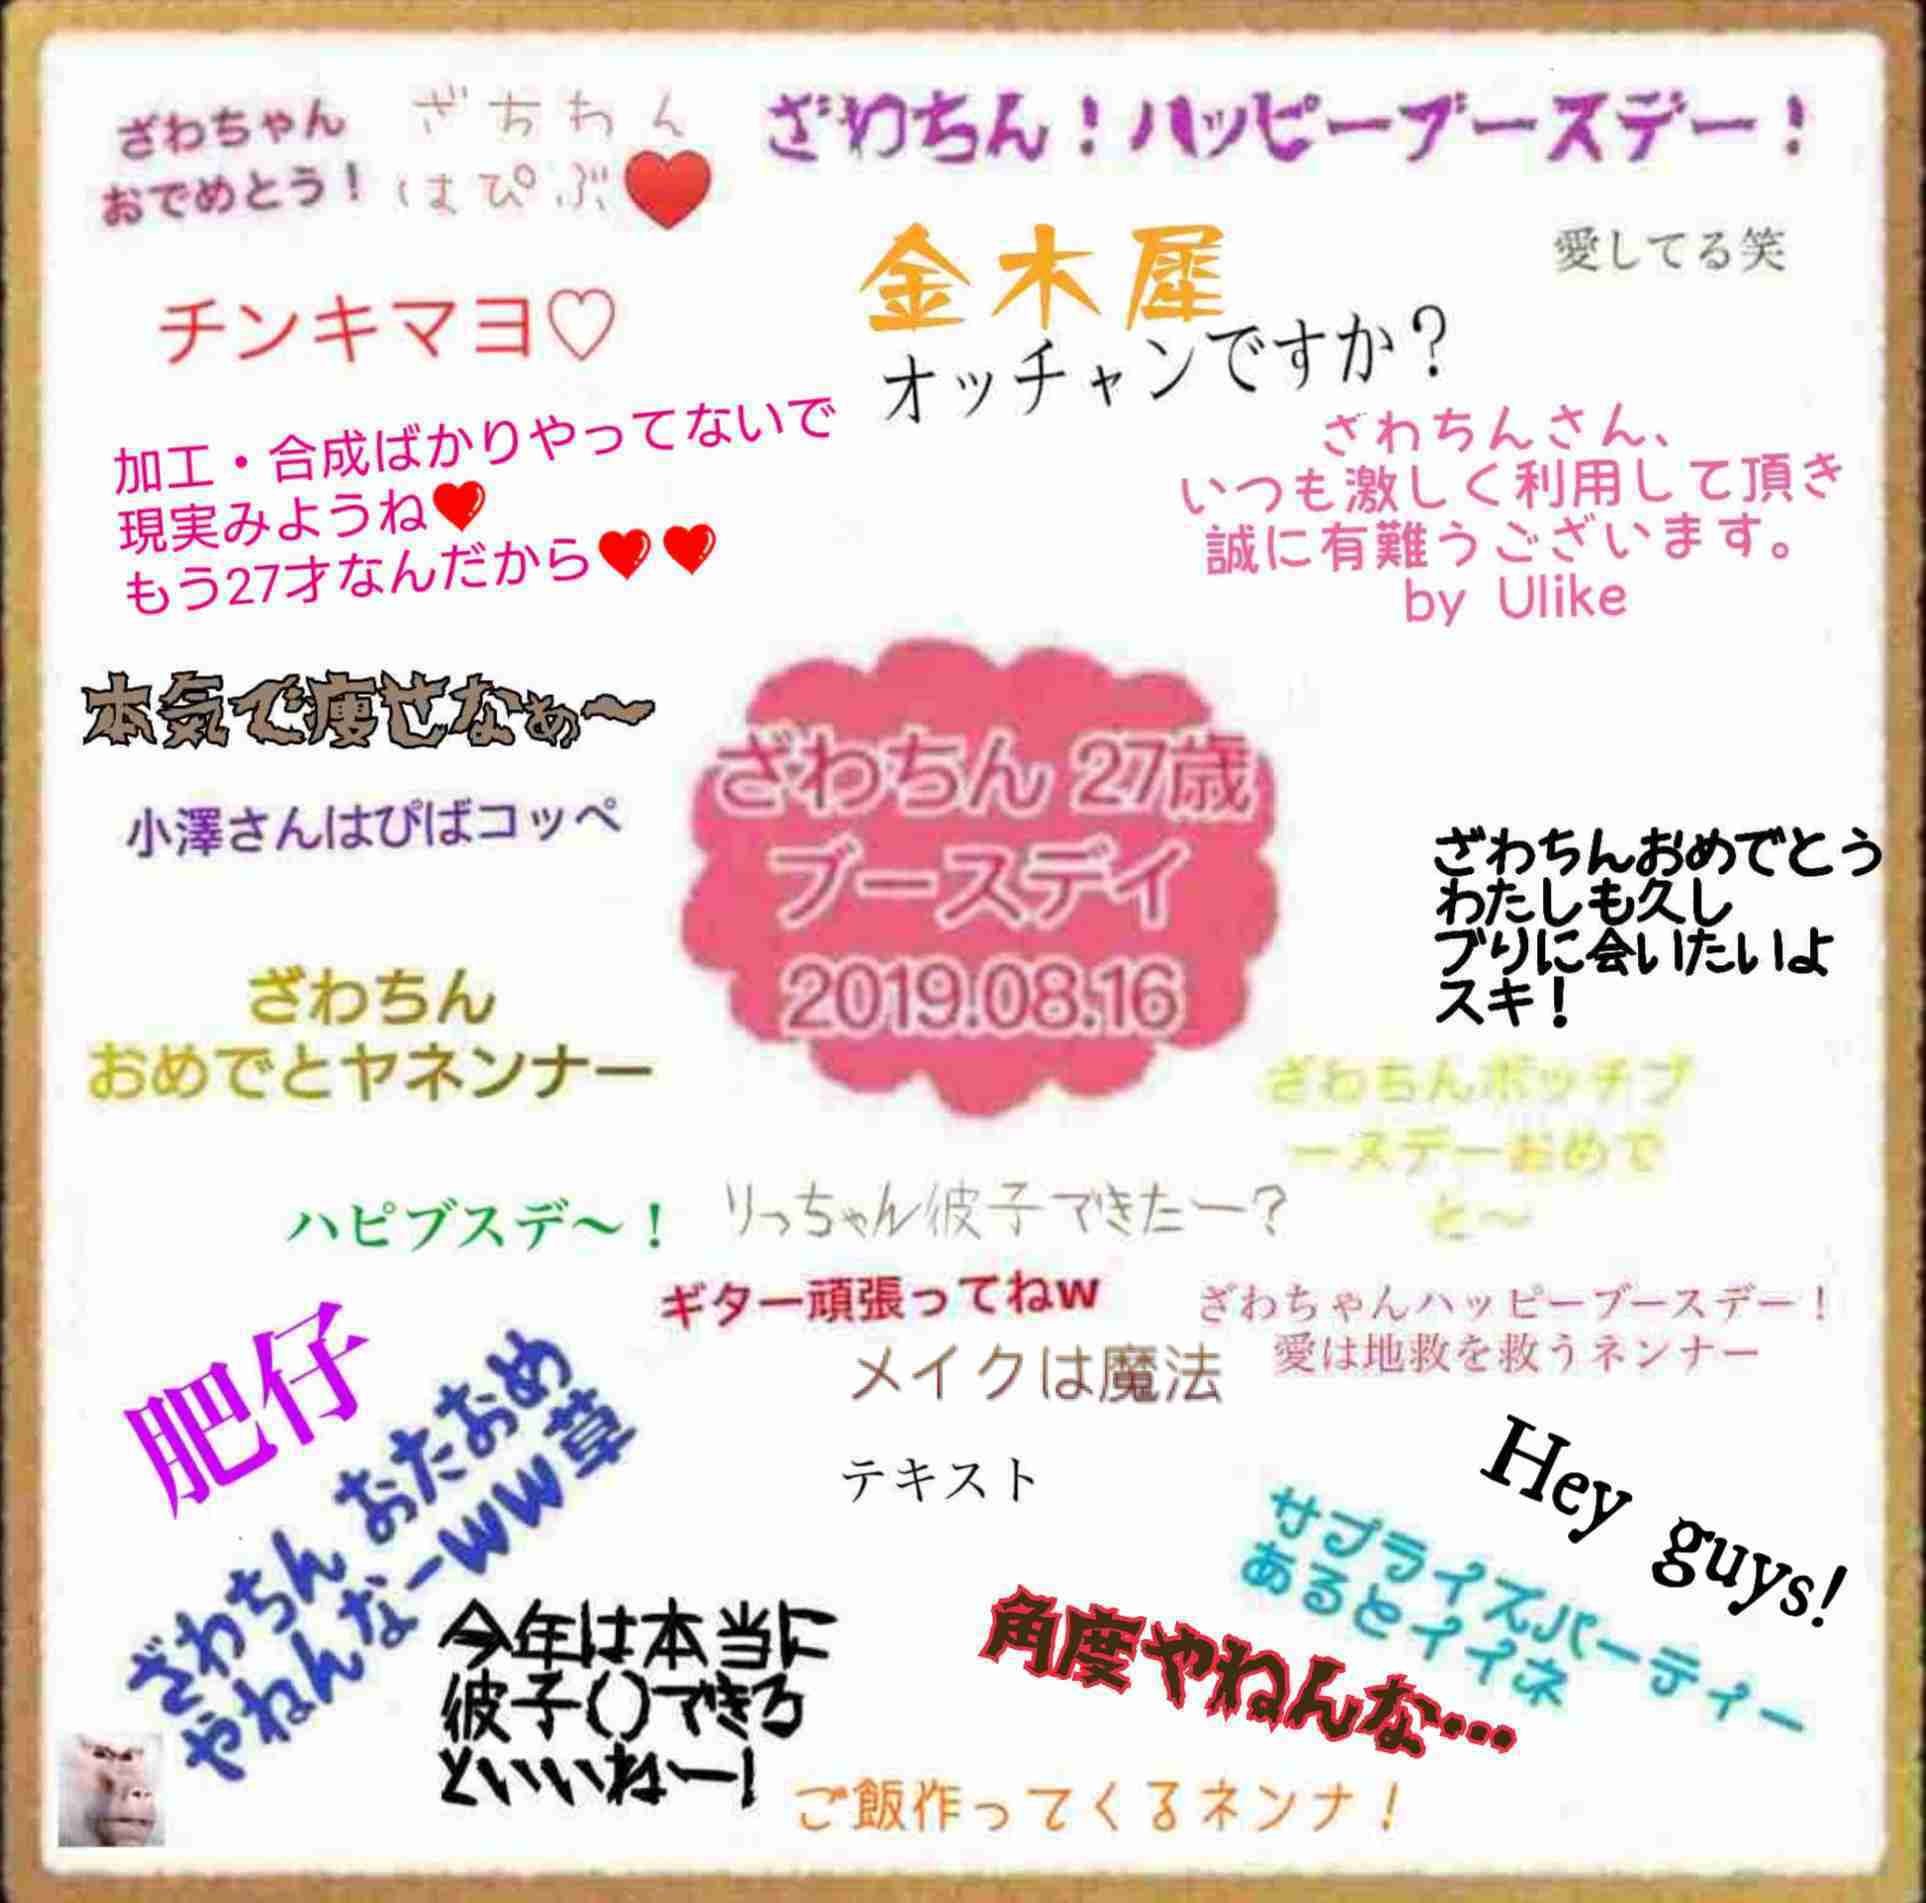 ざわちゃん
おでめとう！
ざちわん
はぴぶ❤
ざわちん！ハッピーブースデー！
愛してる笑
チンキマヨ♡
金木犀
オッチャンですか？
加工・合成ばかりやってないで
現実みようね❤
もう27才なんだから❤❤
ざわちんさん、
いつも激しく利用して頂き
誠に有難うございます。
by Ulike
本気で痩せなぁ〜
小澤さんはぴばコッペ
ざわちん 27歳
ブースデイ
2019.08.16
ざわちんおめでとう
わたしも久し
ブりに会いたいよ
スキ！
ざわちん
おめでとヤネンナー
ざわちんボッチブ
ースデーおめで
と〜
ハピブスデ〜！
りっちゃん彼子できたー？
ギター頑張ってねw
ざわちゃんハッピーブースデー！
愛は地救を救うネンナー
メイクは魔法
肥仔
ざわちん おたおめ
やねんなーwww草
テキスト
Hey guys!
サプライズパーティー
あるとイイネ
角度やねんな…
今年は本当に
彼子()できろ
といいねー！
ご飯作ってくるネンナ！